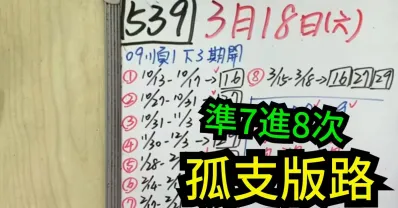 539 3月18日(六)
09順1下3期開
① 10/13-10/17→16 ⑧ 3/15-3/18→16 27 29
② 10/27-10/31
③ 10/31-11/3
④ 11/30-12/3→
⑤ 1/28-2/
⑥ 2/4-
⑦ 2/
準7進8次
孤支版路